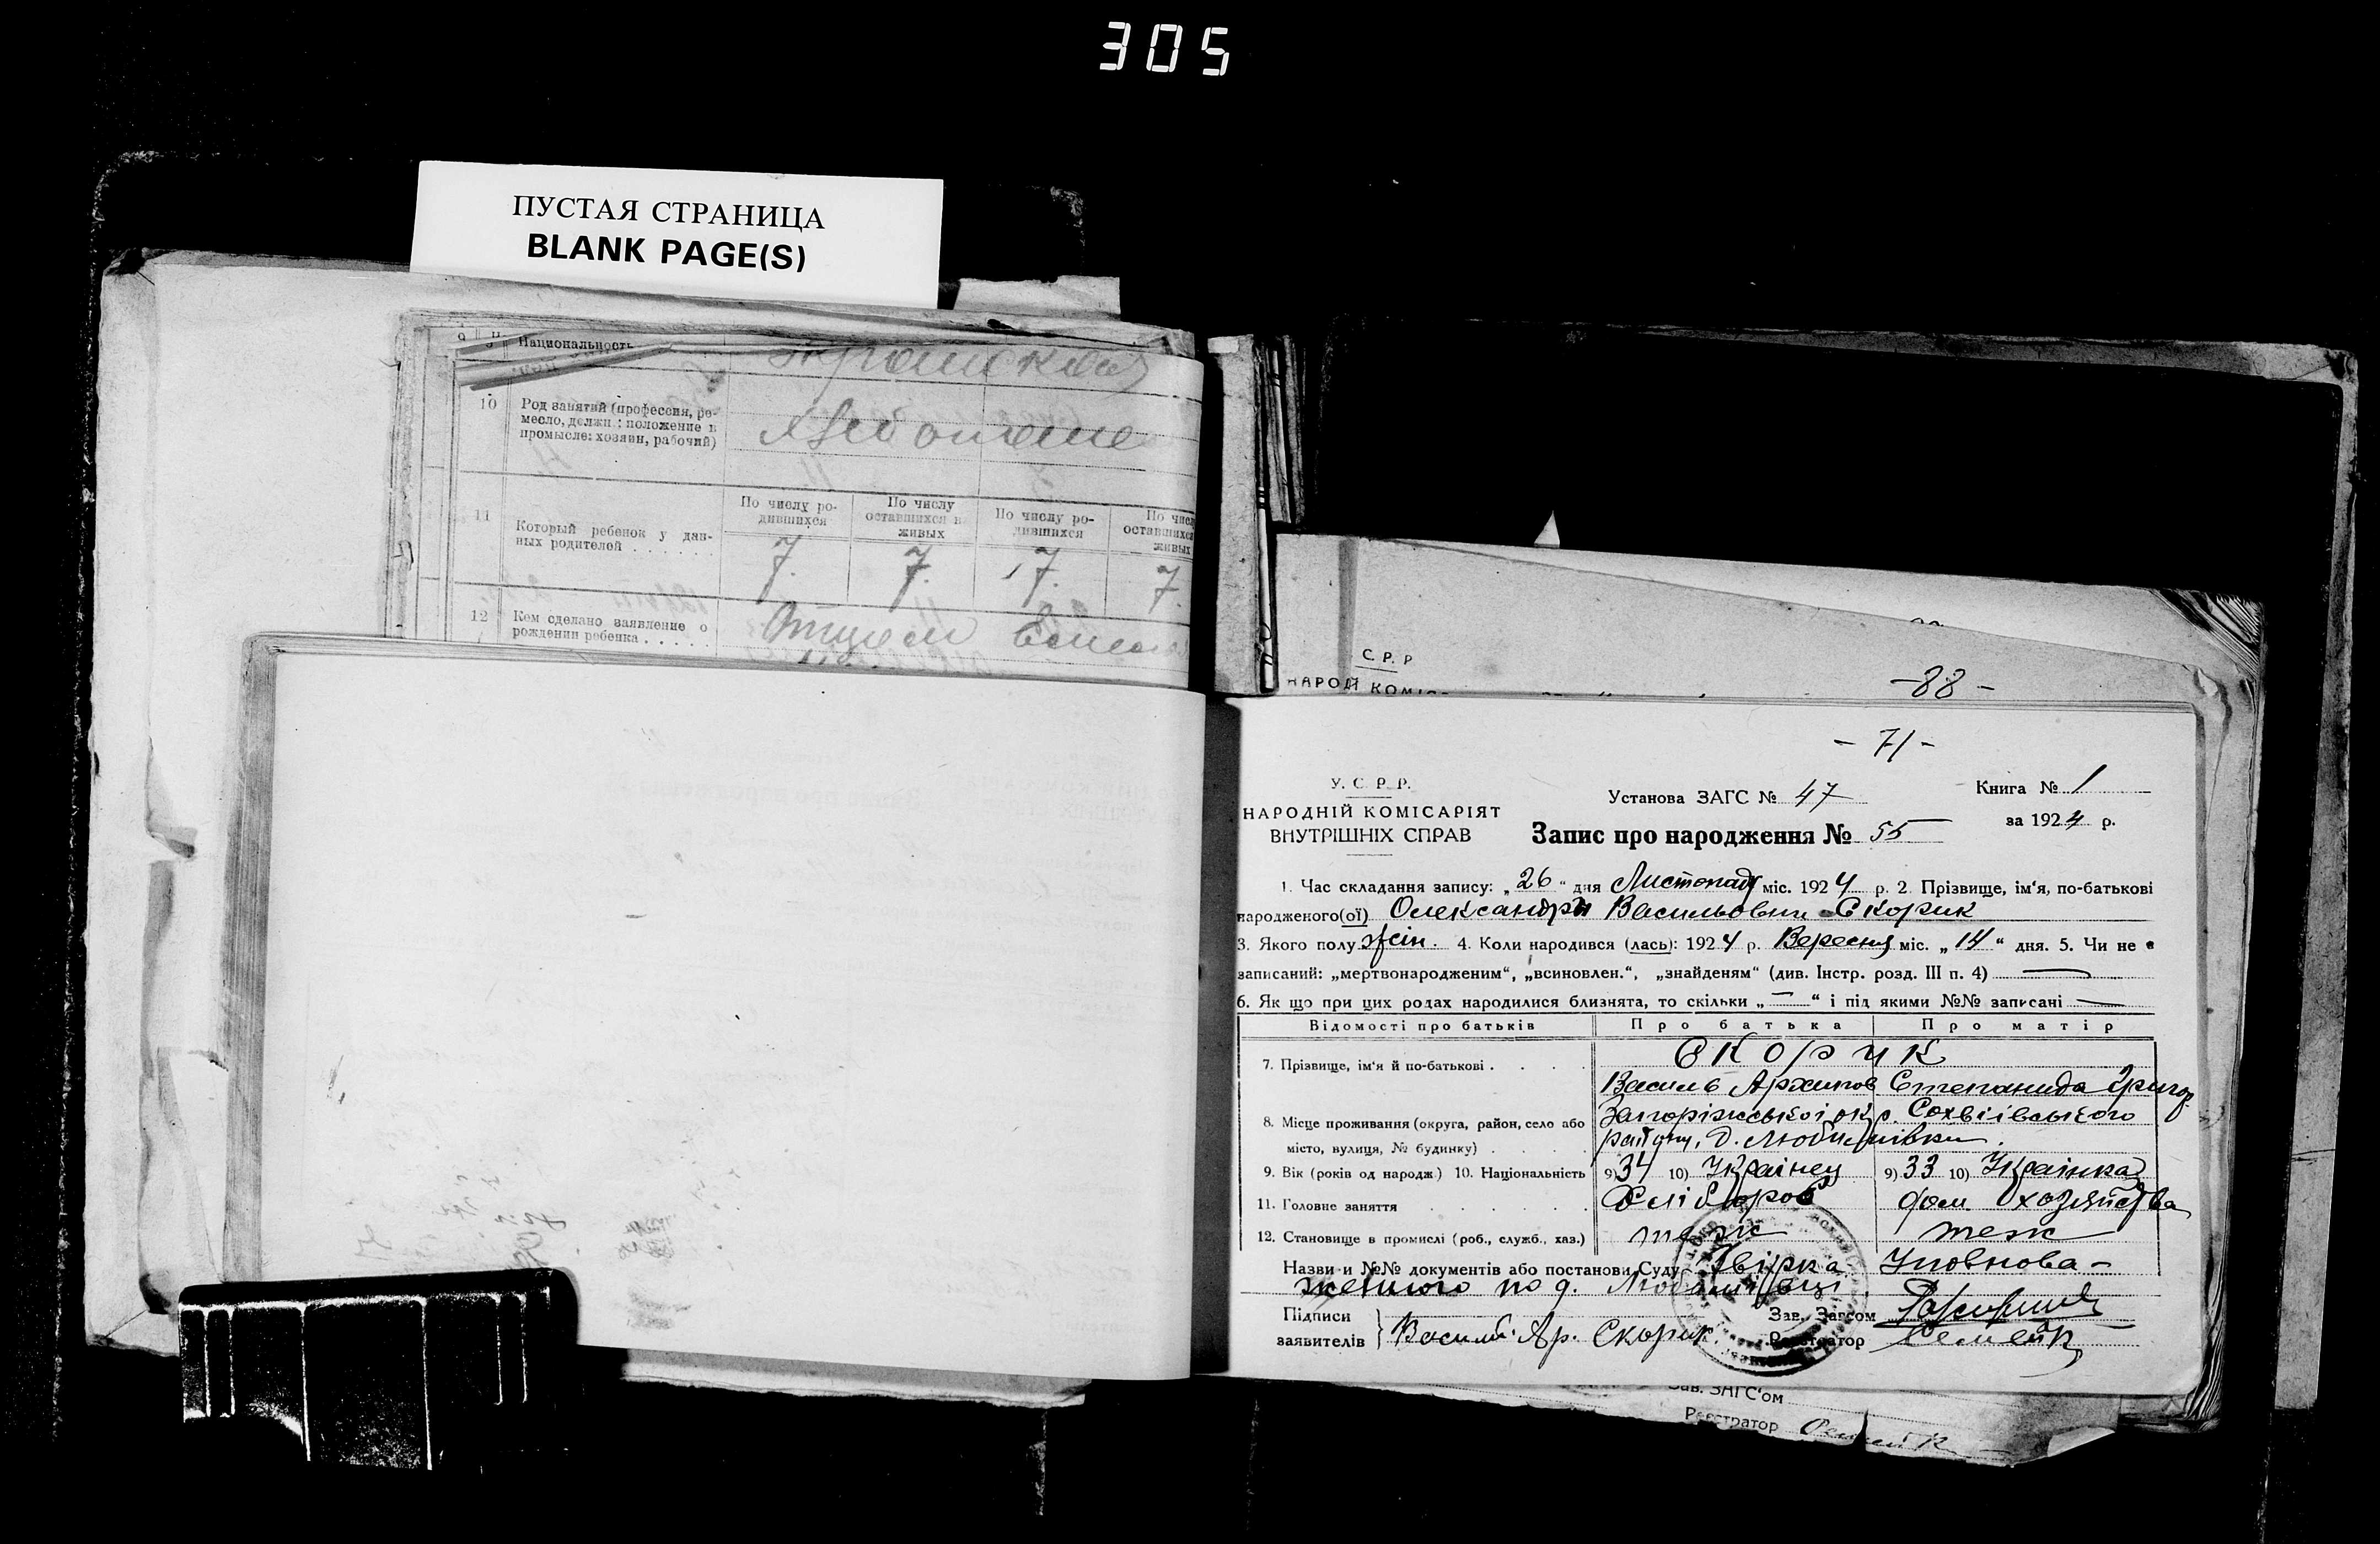 305
ПУСТАЯ СТРАНИЦА
BLANK PAGE(S)
Национальность
10 Род занятий (профессия, ре-
месло, должн.: положение в
промысле: хозяин, рабочий)
По числу ро-
дившихся
По числу
оставшихся в
живых
По числу ро-
дившихся
По числ
оставшихся
живых
11 Который ребенок у дан-
ных родителей
7. 7. 7. 7.
12 Кем сделано заявление о
рождении ребенка
Отцем
С. Р. Р
НАРОД КОМІС
-88-
-71-
У. С. Р. Р.
НАРОДНІЙ КОМІСАРІЯТ
ВНУТРІШНІХ СПРАВ
Установа ЗАГС № 47
Книга № 1
Запис про народження № 55
за 1924 р.
1. Час складання запису: „26“ дня Листопада міс. 1924 р. 2. Прізвище, ім'я, по-батькові
народженого(ої) Олександра Васильовни Скорик
3. Якого полу жін. 4. Коли народився (лась): 1924 р. Вересня міс. „14“ дня. 5. Чи не є
записаний: „мертвонародженим“, „всиновлен.“, „знайденям“ (див. Інстр. розд. III п. 4) —
6. Як що при цих родах народилися близнята, то скільки „—“ і під якими №№ записані —
Відомості про батьків Про батька Про матір
7. Прізвище, ім'я й по-батькові Скорик
Василь Архипов Степанида Григор.
8. Місце проживання (округа, район, село або Запоріжської окр. Софіївського
місто, вулиця, № будинку) району, д. Любимівки.
9. Вік (років од народж.) 10. Національність 9) 34 10) Українец 9) 33 10) Українка
11. Головне заняття Хлібороб дом. хозяйства
12. Становище в промислі (роб., служб., хаз.) теж теж
Назви и №№ документів або постанови Суду Уповнова-
женного по д. Любимівці
Підписи
заявителів } Василь Ар. Скорик.
Зав. Загсом
Реєстратор
Зав. ЗАГС'ом
Реєстратор